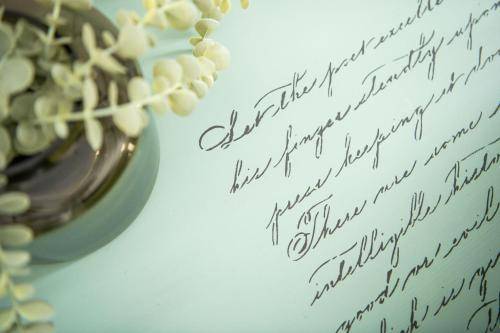 Let the pot excelle
his finger stendty upon
press keeping it do
There are some
intelligible histo
good or evil
is ye
Th